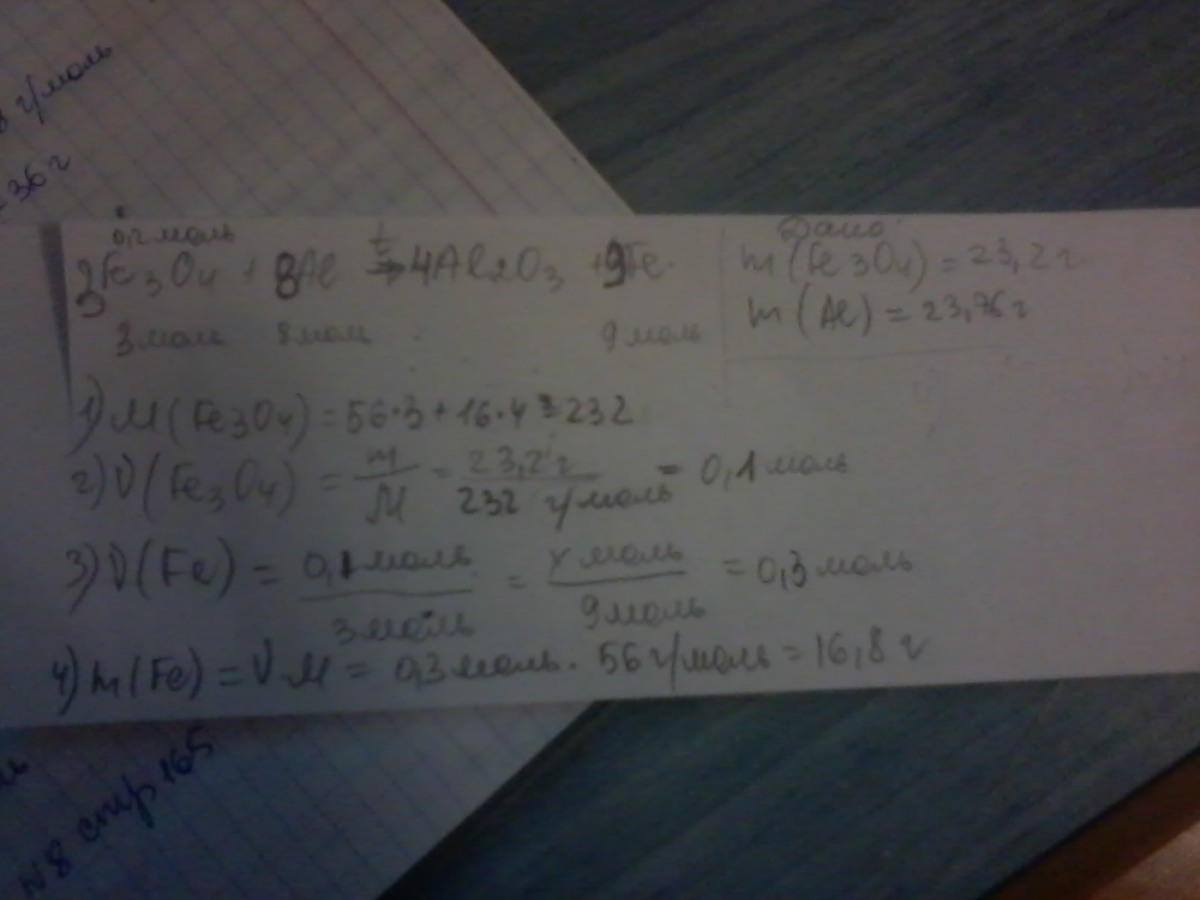 г/моль
= 36 г
0,2 моль
3Fe3O4 + 8Al t→ 4Al2O3 + 9Fe
3 моль 8 моль 9 моль
Дано:
m(Fe3O4) = 23,2 г
m(Al) = 23,76 г
1) M(Fe3O4) = 56·3 + 16·4 = 232
2) ν(Fe3O4) = m/M = 23,2 г/232 г/моль = 0,1 моль
3) ν(Fe) = 0,1 моль/3 моль = x моль/9 моль = 0,3 моль
4) m(Fe) = ν·M = 0,3 моль · 56 г/моль = 16,8 г
№8 стр 165